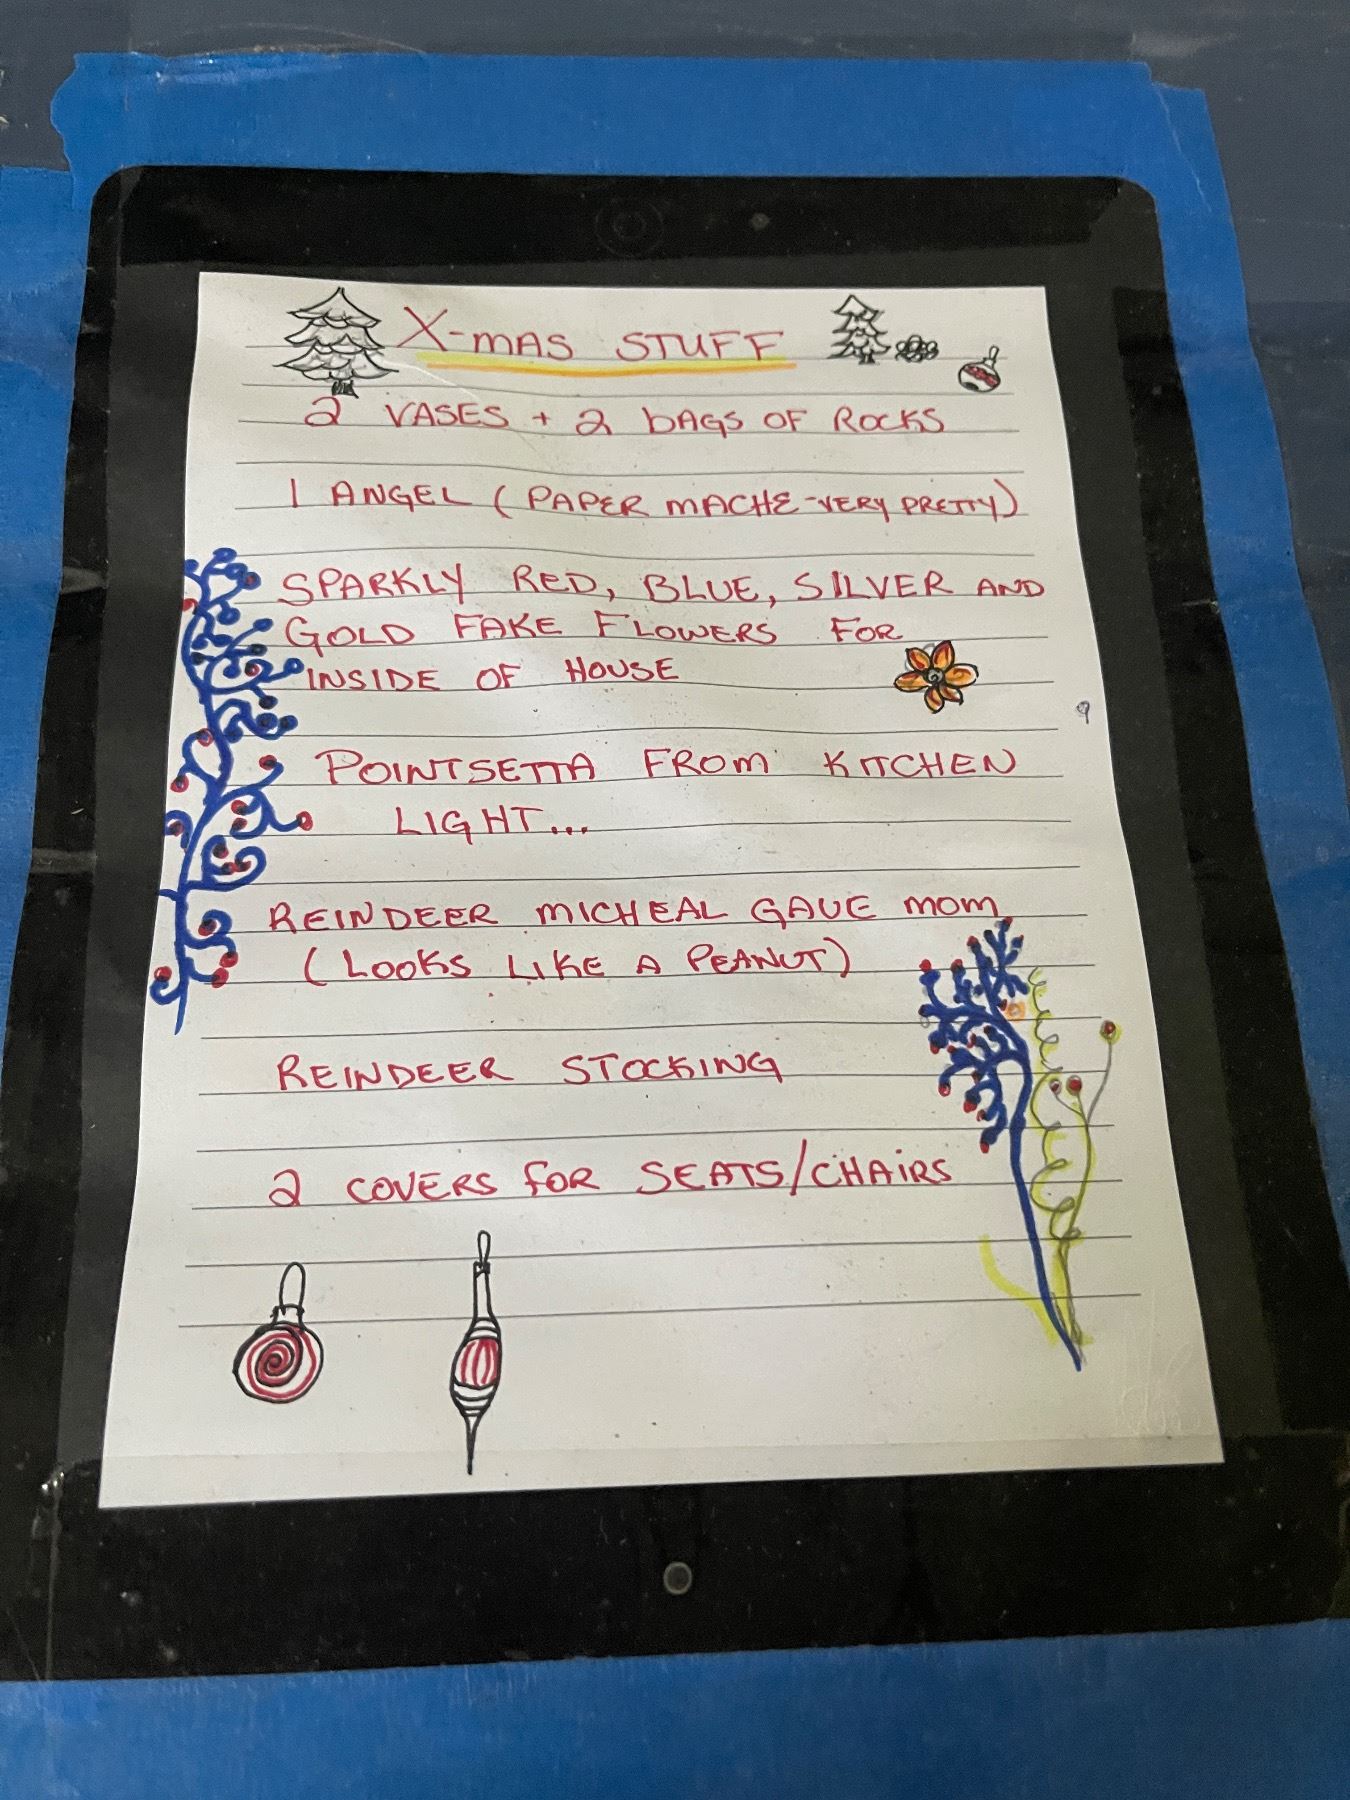 X-MAS STUFF
2 VASES + 2 BAGS OF ROCKS
1 ANGEL (PAPER MACHE - VERY PRETTY)
SPARKLY RED, BLUE, SILVER AND
GOLD FAKE FLOWERS FOR
INSIDE OF HOUSE
POINTSETTA FROM KITCHEN
LIGHT...
REINDEER MICHEAL GAVE MOM
(LOOKS LIKE A PEANUT)
REINDEER STOCKING
2 COVERS FOR SEATS/CHAIRS